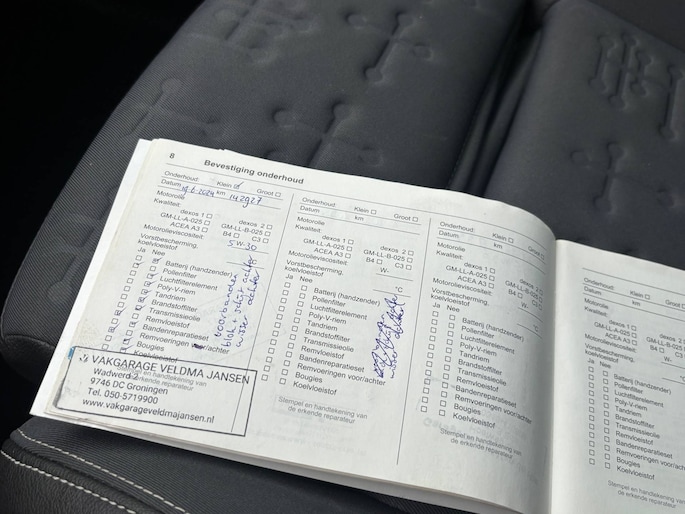 8 Bevestiging onderhoud
Onderhoud: Klein Groot
Datum 18.6.2024 km 142927
Motorolie
Kwaliteit:
dexos 1 dexos 2
GM-LL-A-025 GM-LL-B-025
ACEA A3 B4 C3
Motorolieviscositeit: 5 W- 30
Vorstbescherming, °C
koelvloeistof
Ja Nee
Batterij (handzender)
Pollenfilter
Luchtfilterelement
Poly-V-riem
Tandriem
Brandstoffilter
Transmissieolie
Remvloeistof
Bandenreparatieset
Remvoeringen voor/achter
Bougies
Koelvloeistof
voorbanden
blok + schijf achter
wisser achter
VAKGARAGE VELDMA JANSEN
Wadwerd 2
9746 DC Groningen
Tel. 050-5719900
www.vakgarageveldmajansen.nl
Onderhoud: Klein Groot
Datum km
Motorolie
Kwaliteit:
dexos 1 dexos 2
GM-LL-A-025 GM-LL-B-025
ACEA A3 B4 C3
Motorolieviscositeit: W-
Vorstbescherming, °C
koelvloeistof
Ja Nee
Batterij (handzender)
Pollenfilter
Luchtfilterelement
Poly-V-riem
Tandriem
Brandstoffilter
Transmissieolie
Remvloeistof
Bandenreparatieset
Remvoeringen voor/achter
Bougies
Koelvloeistof
Stempel en handtekening van
de erkende reparateur
Onderhoud: Klein Groot
Datum km
Motorolie
Kwaliteit:
dexos 1 dexos 2
GM-LL-A-025 GM-LL-B-025
ACEA A3 B4 C3
Motorolieviscositeit: W-
Vorstbescherming, °C
koelvloeistof
Ja Nee
Batterij (handzender)
Pollenfilter
Luchtfilterelement
Poly-V-riem
Tandriem
Brandstoffilter
Transmissieolie
Remvloeistof
Bandenreparatieset
Remvoeringen voor/achter
Bougies
Koelvloeistof
Stempel en handtekening van
de erkende reparateur
Onderhoud: Klein
Datum km
Motorolie
Kwaliteit:
dexos 1
GM-LL-A-025
ACEA A3
Motorolieviscositeit:
Vorstbescherming,
koelvloeistof
Ja Nee
Batterij (handzender)
Pollenfilter
Luchtfilterelement
Poly-V-riem
Tandriem
Brandstoffilter
Transmissieolie
Remvloeistof
Bandenreparatieset
Remvoeringen voor/achter
Bougies
Koelvloeistof
Stempel en handtekening van
de erkende reparateur